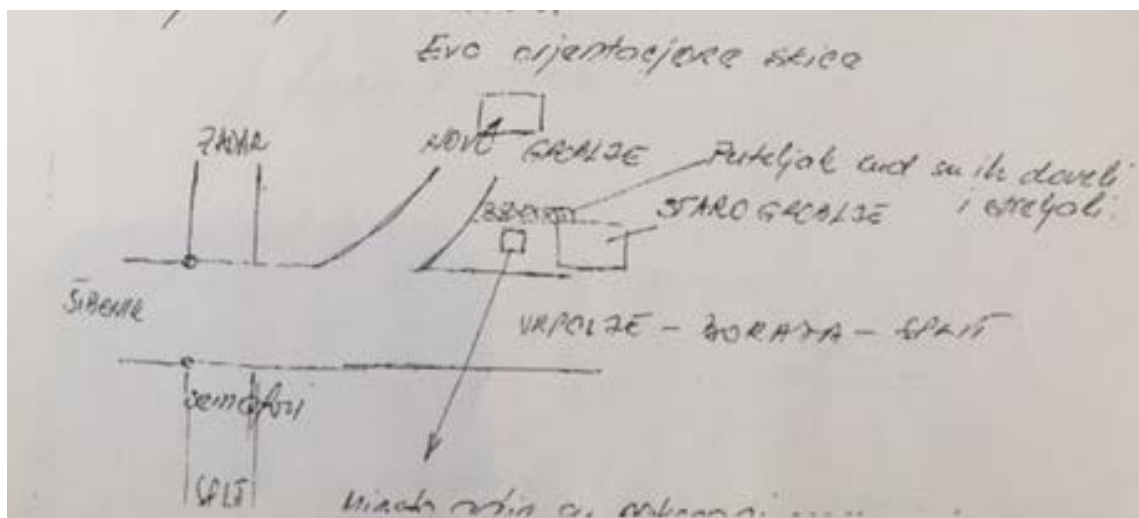 Evo orjentacjona skica
ZADAR
NOVO GROBLJE
Puteljak kud su ih doveli
i streljali.
STARO GROBLJE
ŠIBENIK
VRPOLJE - BORAJA - SPLIT
semafori
SPLIT